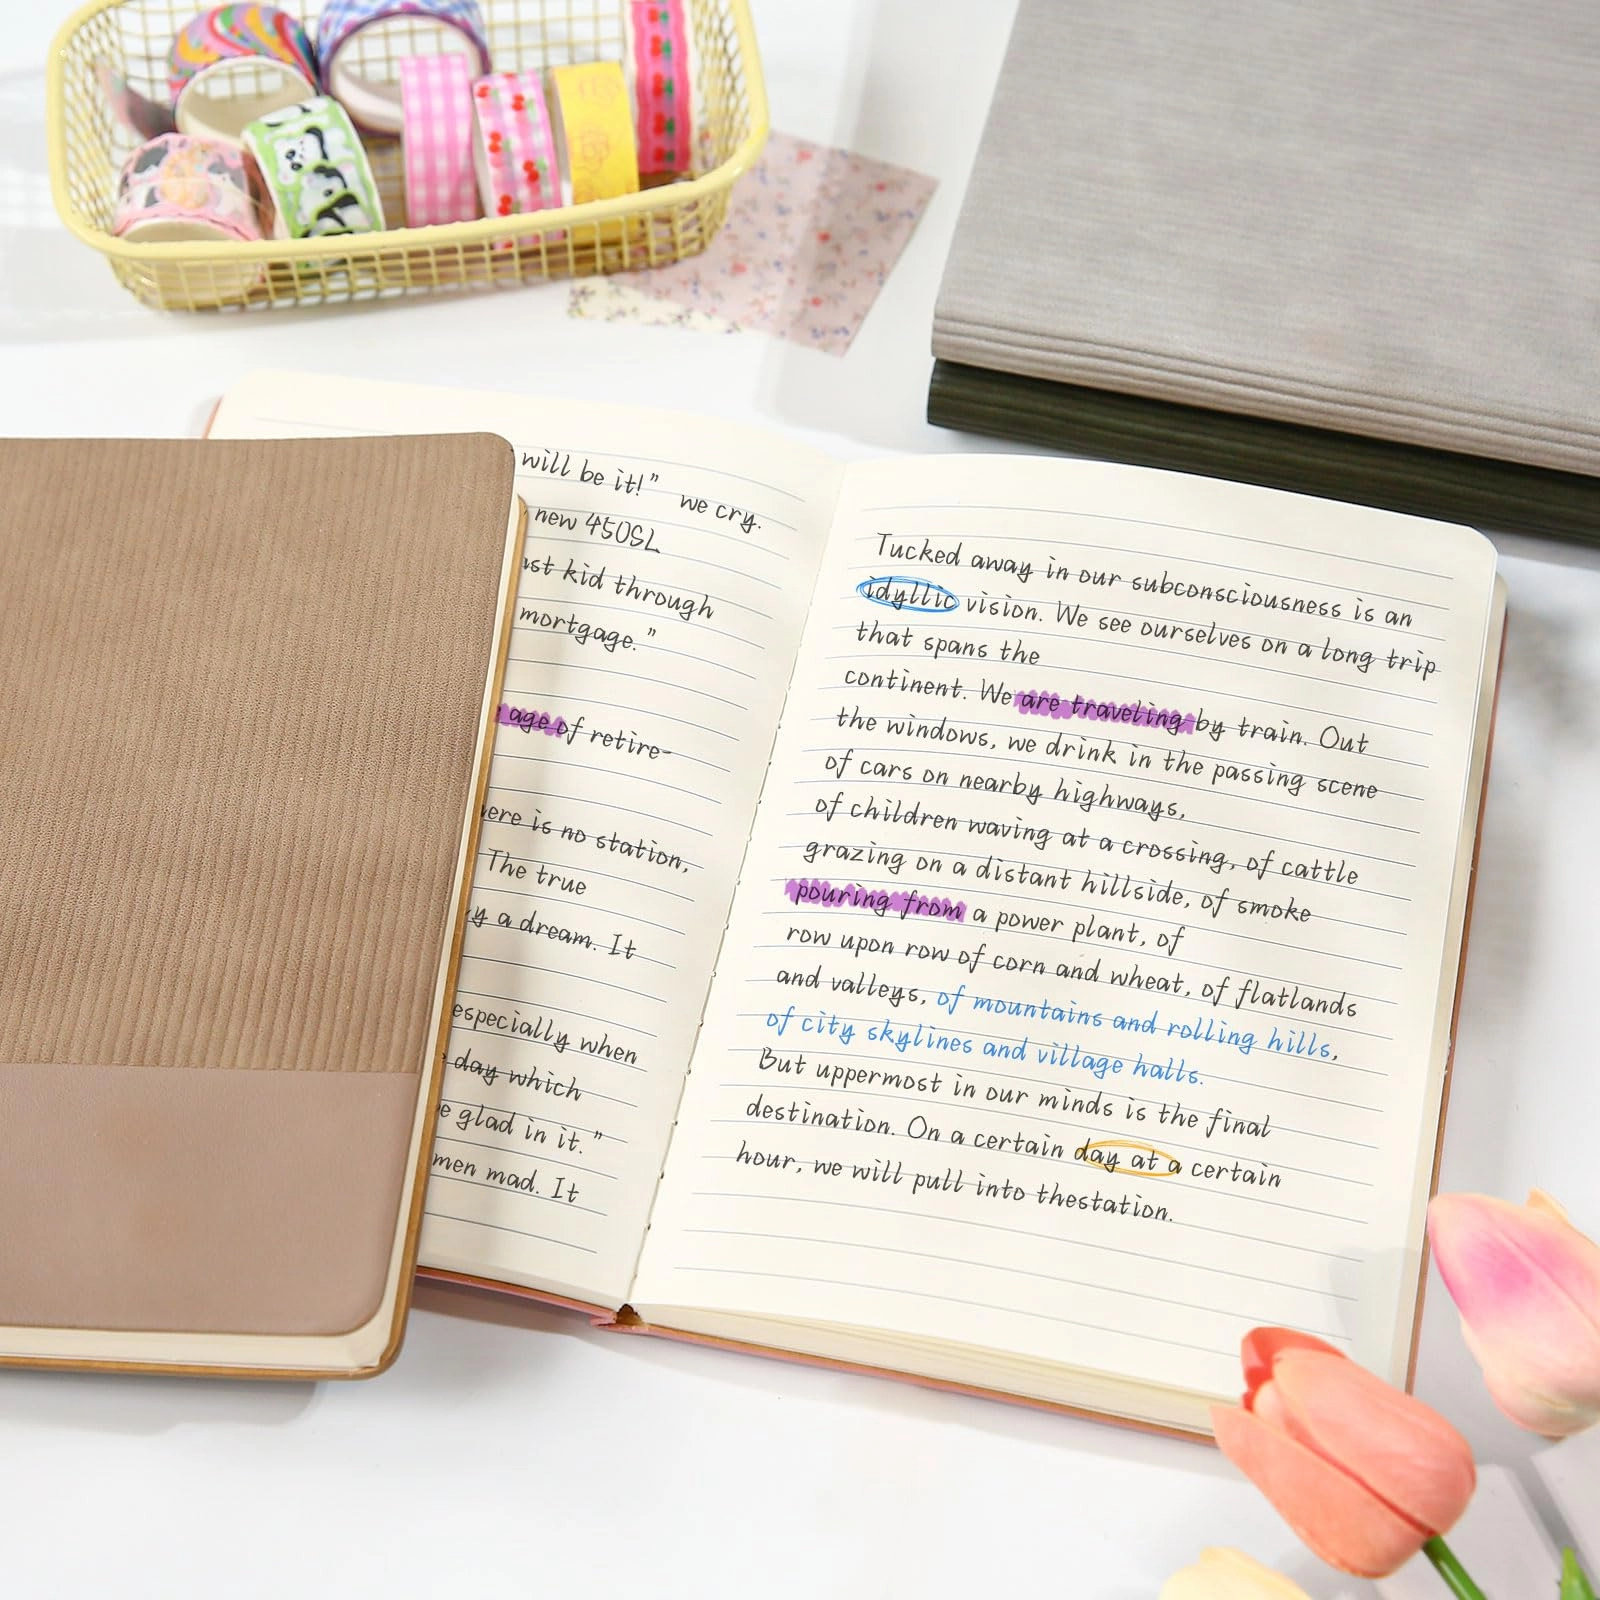 will be it!" we cry.
new 450SL
kid through
mortgage."
age of retire-
is no station,
The true
a dream. It
especially when
day which
glad in it."
mad. It
Tucked away in our subconsciousness is an
idyllic vision. We see ourselves on a long trip
that spans the
continent. We are traveling by train. Out
the windows, we drink in the passing scene
of cars on nearby highways,
of children waving at a crossing, of cattle
grazing on a distant hillside, of smoke
pouring from a power plant, of
row upon row of corn and wheat, of flatlands
and valleys, of mountains and rolling hills,
of city skylines and village halls.
But uppermost in our minds is the final
destination. On a certain day at a certain
hour, we will pull into thestation.